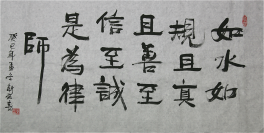 如水如
規且真
且善至
信至誠
是為律
師
癸巳年